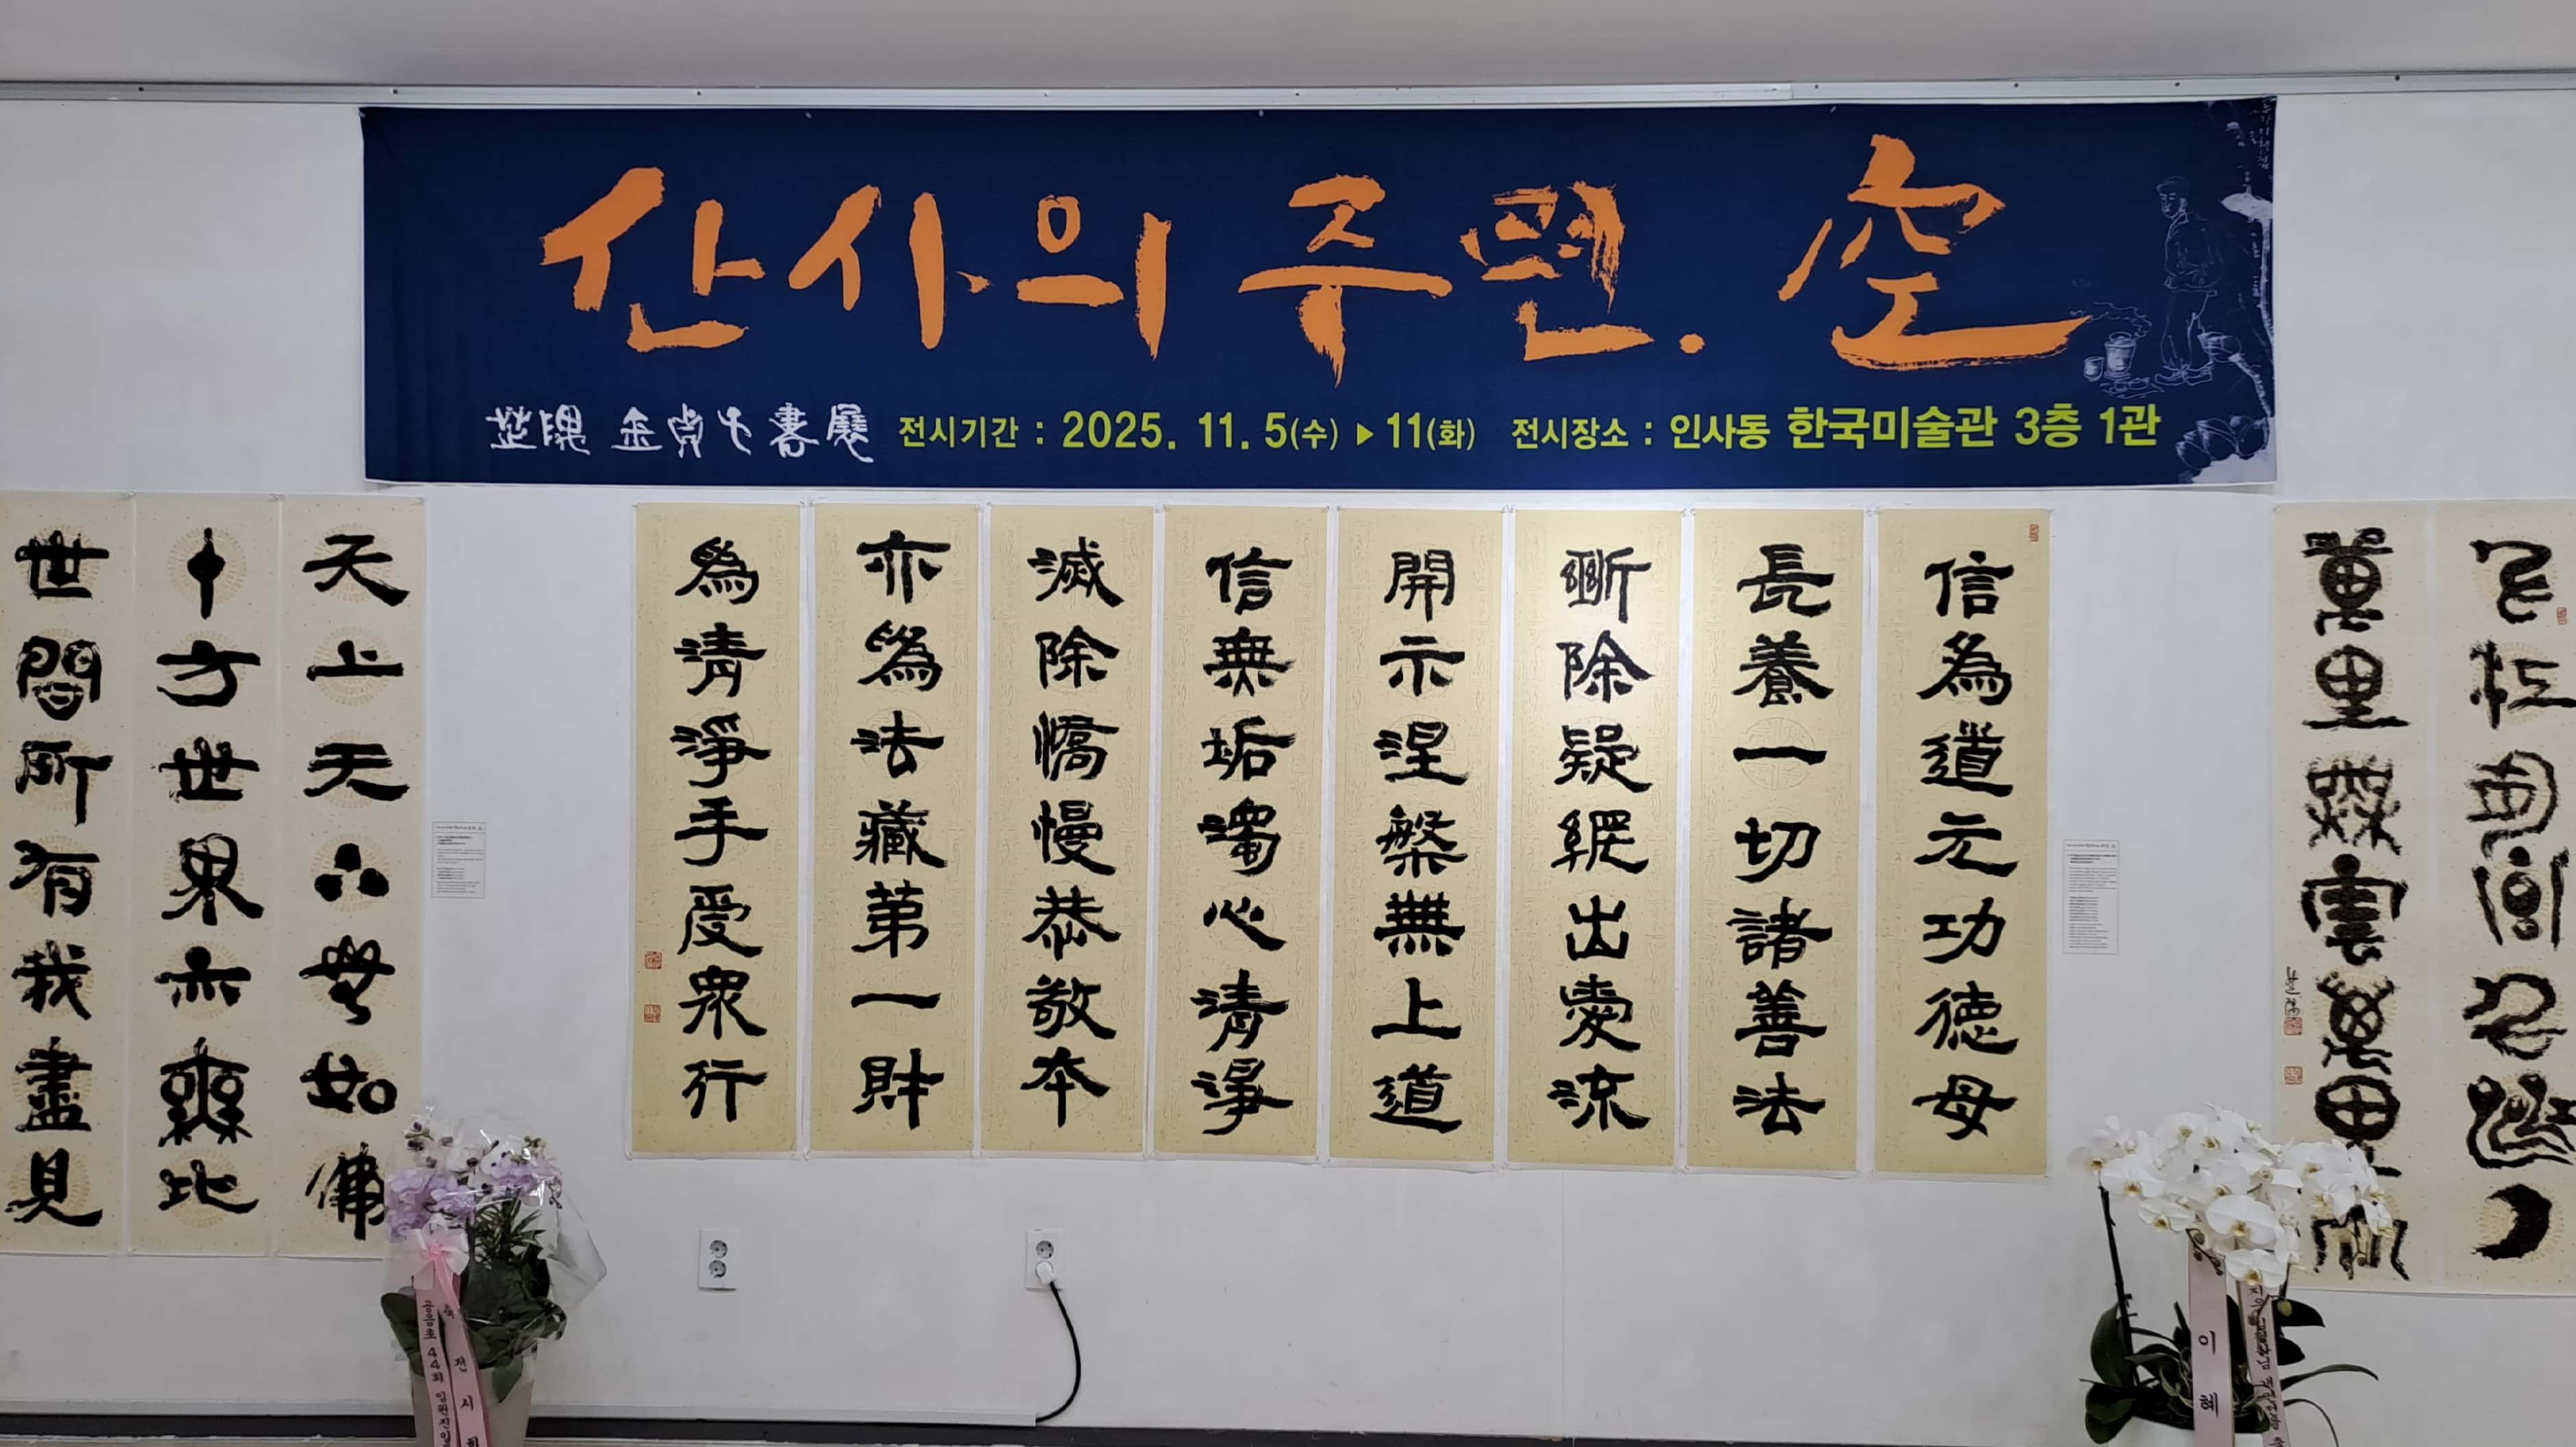 산사의 주련. 空
金 書展 전시기간 : 2025. 11. 5(수) ▶ 11(화) 전시장소 : 인사동 한국미술관 3층 1관
千江有水千江月
萬里無雲萬里天
信為道元功徳母
長養一切諸善法
斷除疑網出愛流
開示涅槃無上道
信無垢濁心清淨
滅除憍慢恭敬本
亦爲法藏第一財
爲清淨手受衆行
天上天下無如佛
十方世界亦無比
世間所有我盡見
44회
전시회
이혜